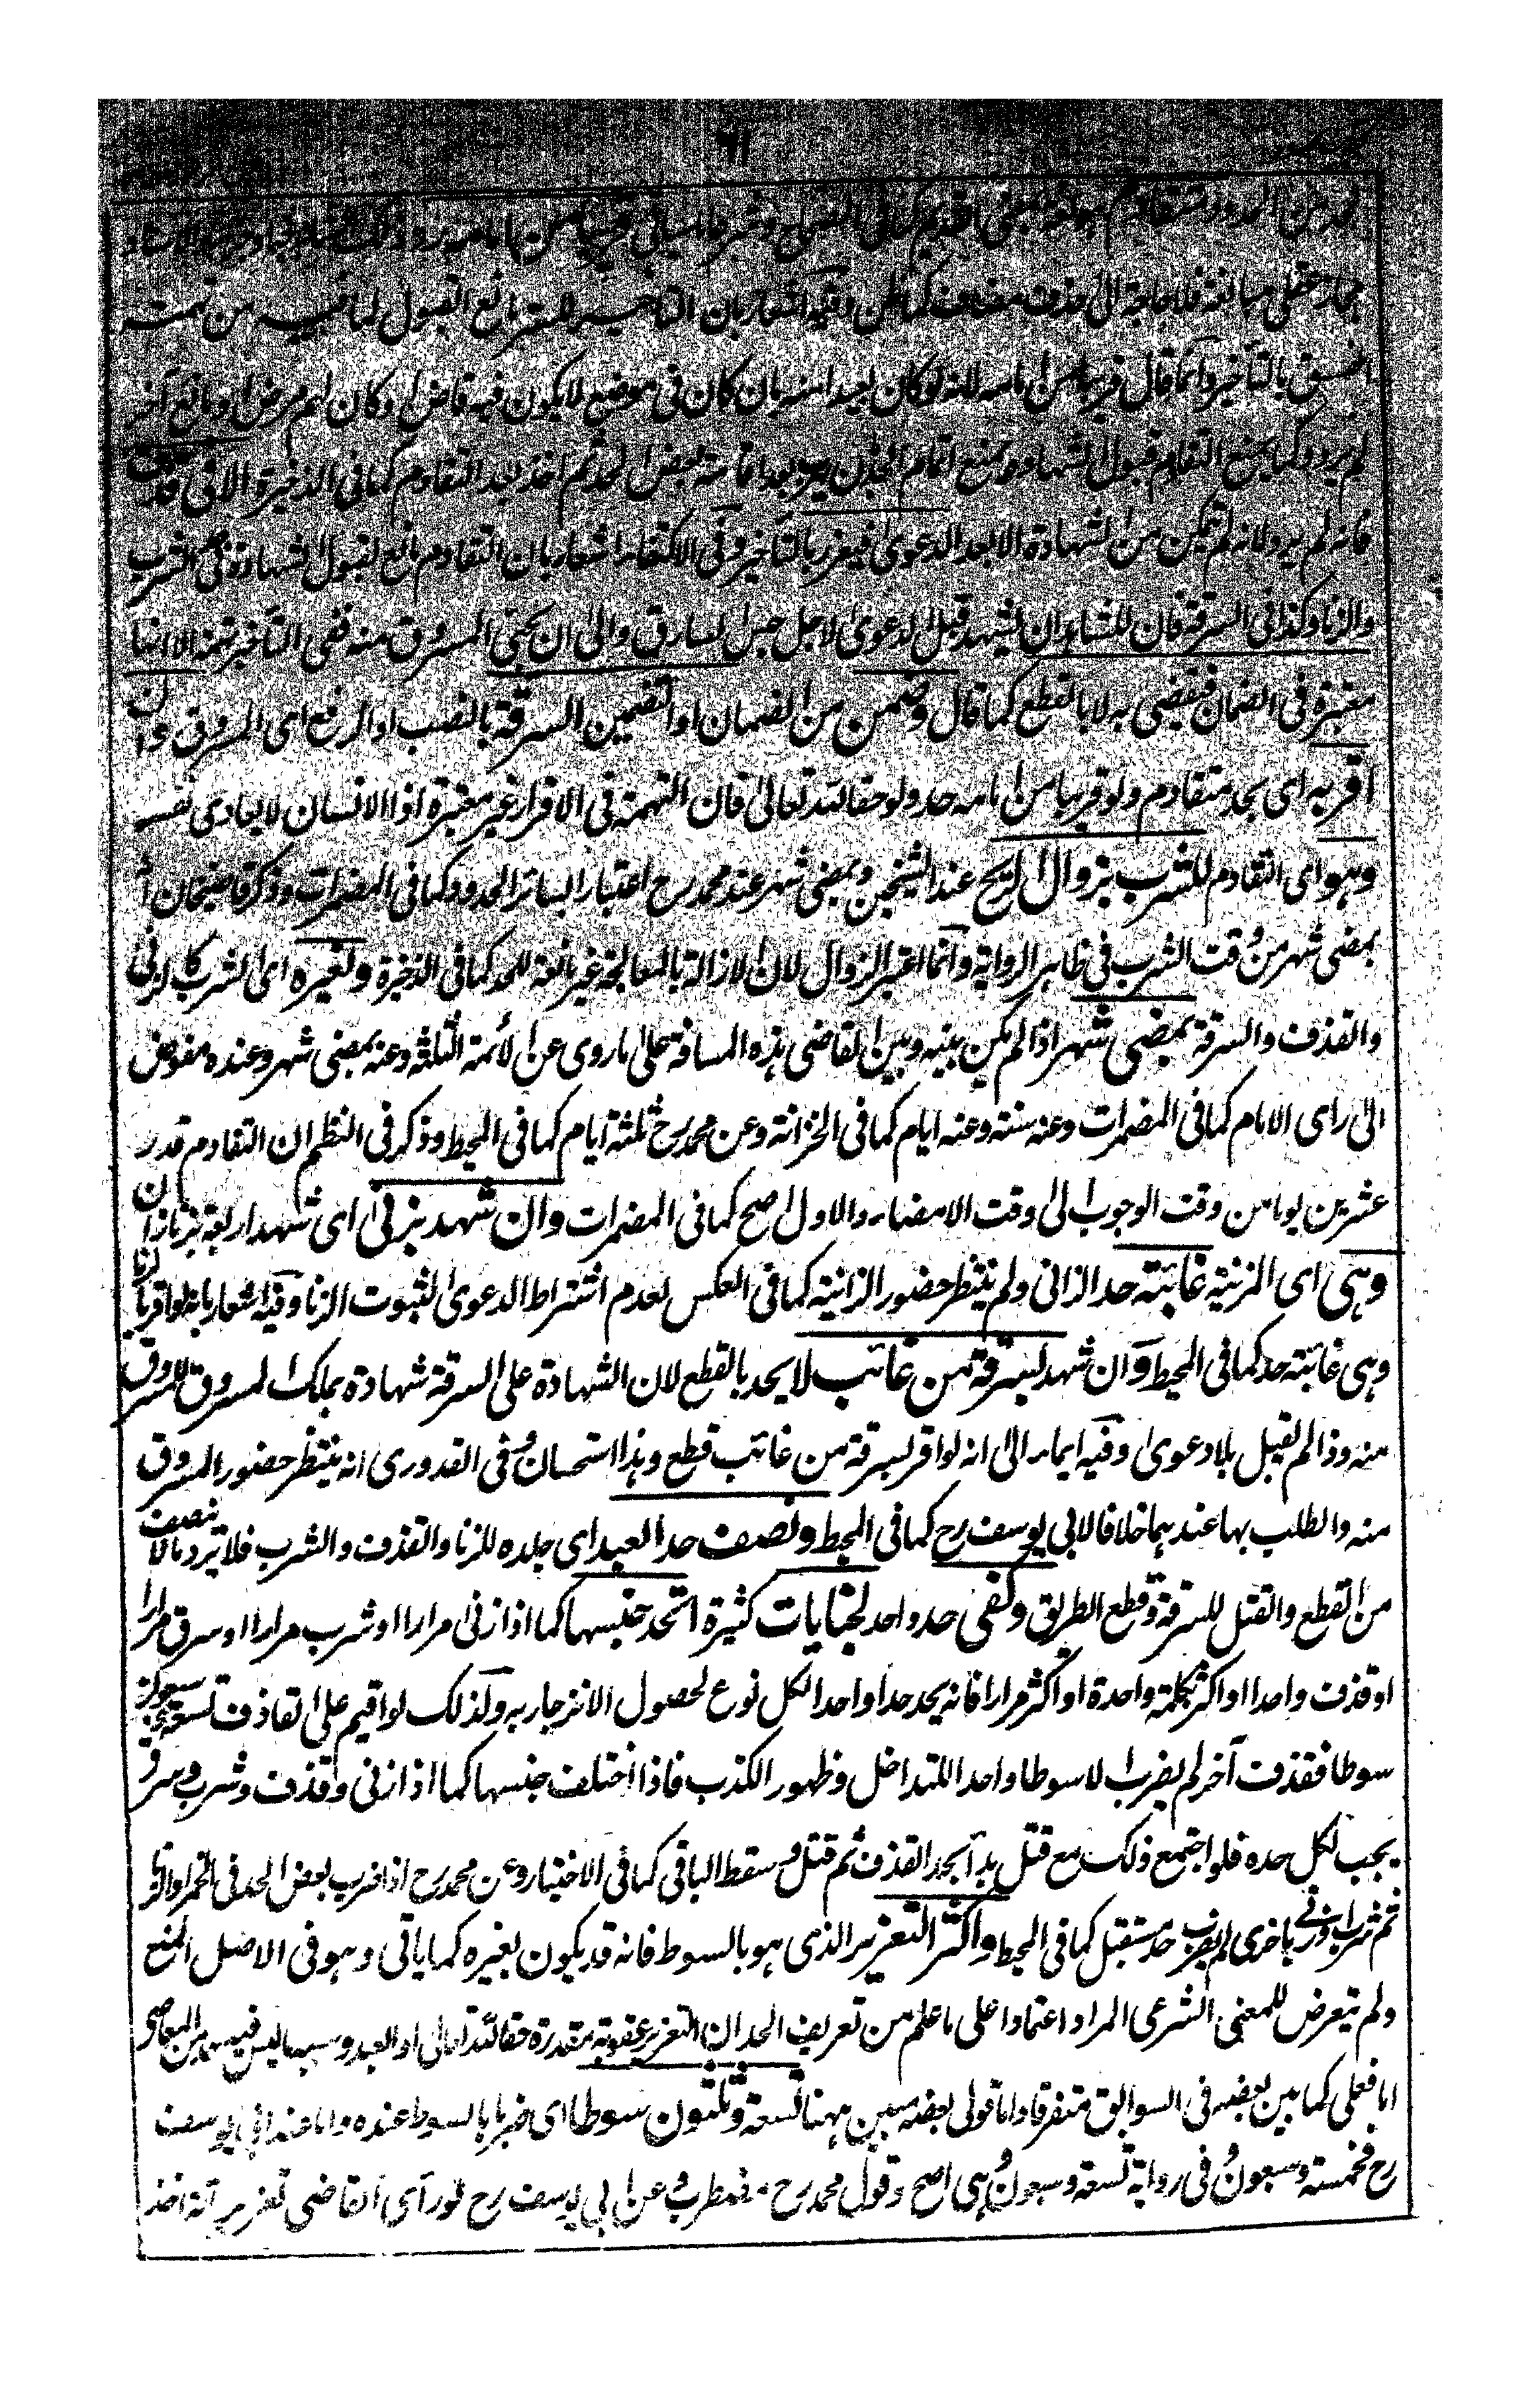 لحد من الحدود متقادم
مجاز عقلي مبالغة فلا حاجة الى حذف مضاف كما ظن وفيه اشعار بان التاخير للستر مانع القبول لما فيه من تهمة
الفسق بالتاخير وانما قال قريبا من امامه لانه لو كان بعيدا منه بان كان في موضع لا يكون فيه قاض او كان لهم مرض او مانع آخر
لم يرد وكما يمنع التقادم قبول الشهادة يمنع اتمام الحد بعد اقامة بعض الحد ثم اخذ بعد التقادم كما في الذخيرة الا في قذف
فانه لم يرد لانه لم يتمكن من الشهادة الا بعد الدعوى فيعذر بالتاخير وفي الاكتفاء اشعار بان التقادم مانع لقبول الشهادة في الشرب
والزنا وكذا في السرقة فان للشاهد ان يشهد قبل الدعوى لاجل حبس السارق والى ان يجئ المسروق منه ففي التاخير تهمة الا انها
معتبرة في الضمان فيقضى به لا بالقطع كما قال وضمن من الضمان او التضمين السرقة بالنصب او الرفع اى المسروق وان
اقر به اى بحد متقادم ولو قريبا من امامه حد ولو حقا لله تعالى فان التهمة في الاقرار غير معتبرة اذ الانسان لا يعادى نفسه
وهو اى التقادم للشرب بزوال الريح عند الشيخين وبمضى شهر عند محمد رح اعتبارا بسائر الحدود كما في المضمرات وذكر قاضيخان انه
بمضى شهر من وقت الشرب في ظاهر الرواية وانما اعتبر الزوال لان الازالة بالمعالجة غير مانعة للحد كما في الذخيرة ولغيره اى الشرب كالزنى
والقذف والسرقة بمضى شهر اذا لم يكن بينه وبين القاضى هذه المسافة على ما روى عن الائمة الثلثة وعنه بمضى شهر وعنده مفوض
الى راى الامام كما في المضمرات وعنه سنة وعنه ايام كما في الخزانة وعن محمد رح ثلثة ايام كما في المحيط وذكر في النظم ان التقادم قدر
عشرين يوما من وقت الوجوب الى وقت الامضاء والاول اصح كما في المضمرات وان شهد بزنى اى شهد اربعة بزنا زان
وهى اى المزنية غائبة حد الزانى ولم ينتظر حضور الزانية كما في العكس لعدم اشتراط الدعوى لثبوت الزنا وفيه اشعار بانه لو اقر بالزنا
وهى غائبة حد كما في المحيط وان شهد بسرقة من غائب لا يحد بالقطع لان الشهادة على السرقة شهادة بملك المسروق للمسروق
منه وذا لم يقبل بلا دعوى وفيه ايماء الى انه لو اقر بسرقة من غائب قطع وهذا استحسان وفي القدورى انه ينتظر حضور المسروق
منه والطلب بها عندهما خلافا لابى يوسف رح كما في المحيط ونصف حد العبد اى جلده للزنا والقذف والشرب فلا يرد ما لا ينصف
من القطع والقتل للسرقة وقطع الطريق وكفى حد واحد لجنايات كثيرة اتحد جنسها كما اذا زنى مرارا او شرب مرارا او سرق مرارا
او قذف واحدا او اكثر بكلمة واحدة او اكثر مرارا فانه يحد حدا واحدا لكل نوع لحصول الانزجار به ولذلك لو اقيم على القاذف تسعة وسبعون
سوطا فقذف آخر لم يضرب الا سوطا واحدا للتداخل وظهور الكذب فاذا اختلف جنسها كما اذا زنى وقذف وشرب وسرق
يجب لكل حده فلو اجتمع ذلك مع قتل بدأ بحد القذف ثم قتل وسقط الباقى كما في الاختيار وعن محمد رح اذا ضرب بعض الحد في الخمر او الزنا
ثم شرب او زنى باخرى لم يضرب حد مستقبل كما في المحيط واكثر التعزير الذى هو بالسوط فانه قد يكون بغيره كما ياتى وهو في الاصل المنع
ولم يتعرض للمعنى الشرعى المراد اعتمادا على ما علم من تعريف الحد ان التعزير عقوبة مقدرة حقا لله تعالى او العبد وسببه ما ليس فيه حد من المعاصى
اما فعلى كما بين بعضه في السوابق متفرقا واما قولى بعضه مبين ههنا تسعة وثلثون سوطا اى ضربا بالسوط عنده واما عند ابى يوسف
رح فخمسة وسبعون وفي رواية تسعة وسبعون وهى اصح وقول محمد رح مضطرب وعن ابى يوسف رح لو رآى القاضى تعزير مائة اخذ